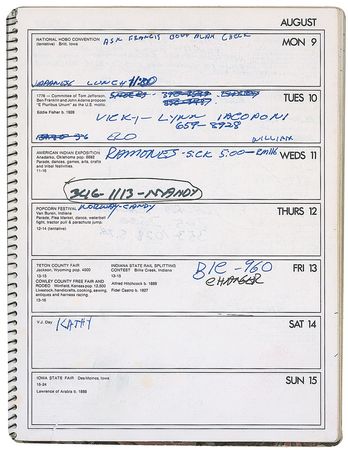 AUGUST
NATIONAL HOBO CONVENTION
(tentative) Britt, Iowa
ASK FRANCIS ABOUT ALAN CHECK
MON 9
JAPANESE LUNCH 1120
1776 – Committee of Tom Jefferson,
Ben Franklin and John Adams propose
"E Pluribus Unum" as the U.S. motto.
Eddie Fisher b. 1928
TUES 10
VICKI - LYNN IACOPONI
657-8928
WILLIAM
AMERICAN INDIAN EXPOSITION
Anadarko, Oklahoma pop. 6682
Parade, dances, games, arts, crafts
and tribal festivities.
11-16
RAMONES - SCK 5:00 -
WEDS 11
346-1113 - MANDY
POPCORN FESTIVAL
Van Buren, Indiana
Parade, Flea Market, dance, waterball
fight, tractor pull & parachute jump.
12-14 (tentative)
NORWAY - CANDY
THURS 12
TETON COUNTY FAIR
Jackson, Wyoming pop. 4500
13-15
COWLEY COUNTY FREE FAIR AND
RODEO Winfield, Kansas pop. 12,500
Livestock, handicrafts, cooking, sewing,
antiques and harness racing.
13-16
INDIANA STATE RAIL SPLITTING
CONTEST Bille Creek, Indiana
13-15
Alfred Hitchcock b. 1899
Fidel Castro b. 1927
BIC - 960
CHARGER
FRI 13
V.J. Day
KATHY
SAT 14
IOWA STATE FAIR Des Moines, Iowa
15-24
Lawrence of Arabia b. 1888
SUN 15